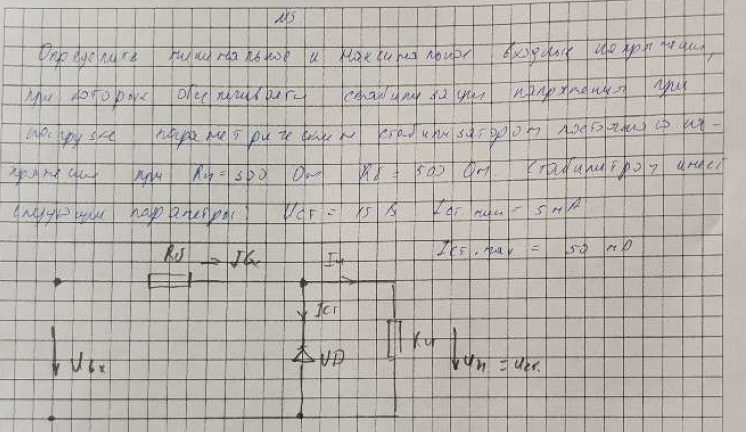 №5
Определите минимальное и максимальное входные напряжения,
при которых обеспечивается стабилизация напряжения при
нагрузке параметрическим стабилизатором постоянного на-
пряжения при Rн = 300 Ом Rб = 500 Ом. Стабилитрон имеет
следующие параметры: Uст = 15 В Iст.мин = 5 мА
Iст.max = 50 мА
Rб → Iвх Iн
Iст
Uвх VD Rн Uн = Uст.